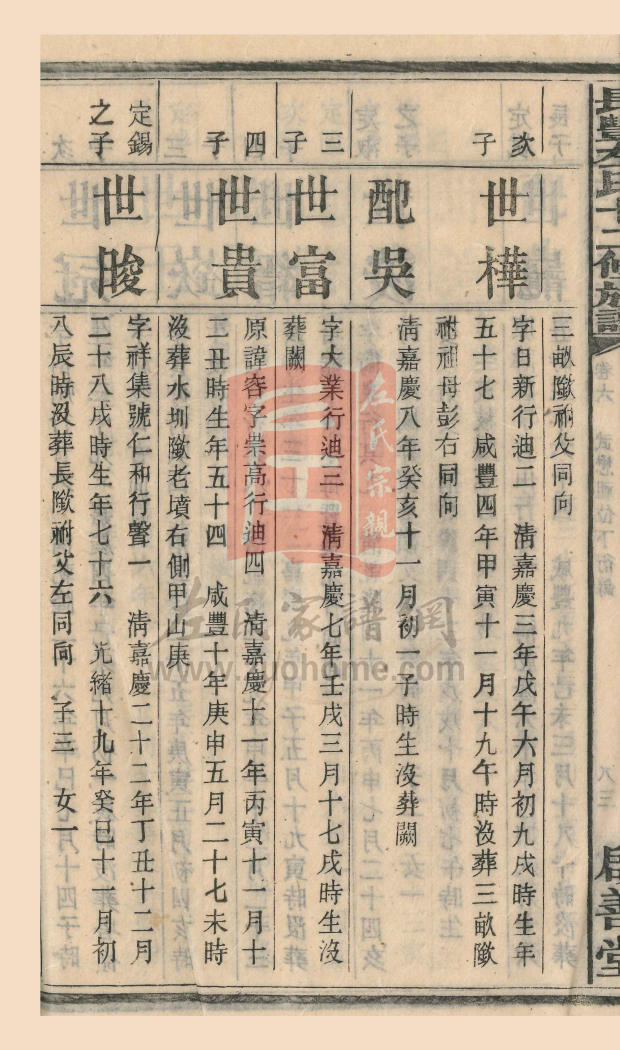 三畝隞祔父同向
次子
世樺
字日新行迪二 清嘉慶三年戊午六月初九戌時生年
五十七 咸豐四年甲寅十一月十九午時沒葬三畝隞
祔祖母彭右同向
配吳
清嘉慶八年癸亥十一月初一子時生沒葬闕
三子
世富
字大業行迪三 清嘉慶七年壬戌三月十七戌時生沒
葬闕
四子
世貴
原諱容字崇高行迪四 清嘉慶十一年丙寅十一月十
二丑時生年五十四 咸豐十年庚申五月二十七未時
沒葬水圳隞老墳右側甲山庚
定錫之子
世晙
字祥集號仁和行聲一 清嘉慶二十二年丁丑十二月
二十八戌時生年七十六 光緒十九年癸巳十一月初
八辰時沒葬長隞祔父左同向 子三 女一
左氏十二修族譜
卷六
啟善堂
左氏宗親
左氏家譜網
www.zuohome.com